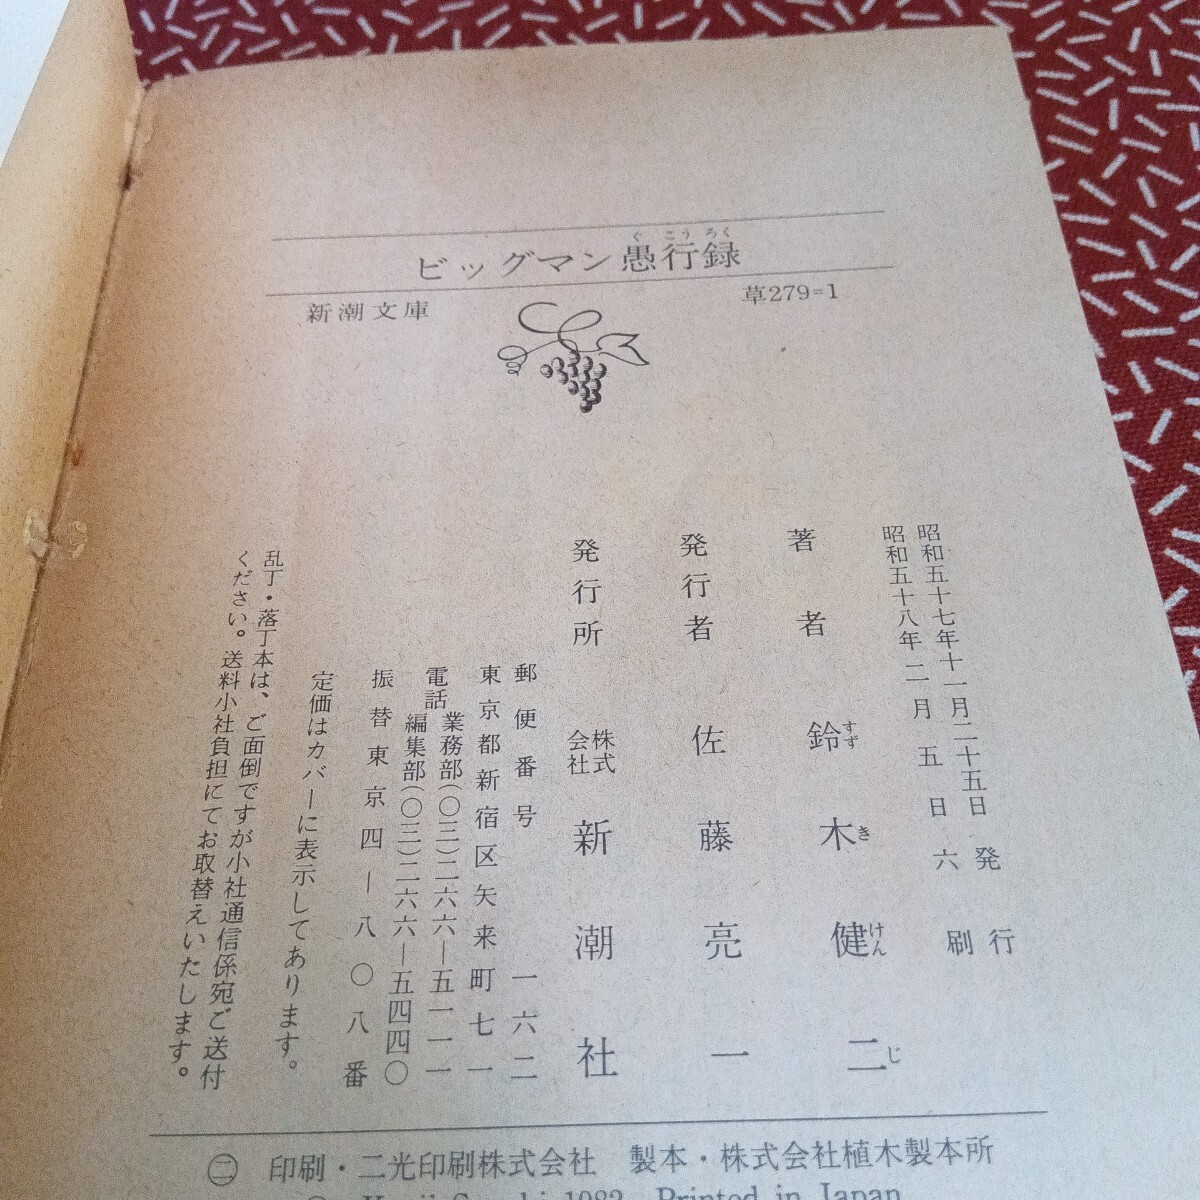 ビッグマン愚行録
ぐこうろく
新潮文庫
草279=1
昭和五十七年十一月二十五日 発行
昭和五十八年二月五日 六刷
著者 鈴木健二
すずきけんじ
発行者 佐藤亮一
発行所 株式会社 新潮社
郵便番号 一六二
東京都新宿区矢来町七一
電話 業務部(〇三)二六六―五一一一
編集部(〇三)二六六―五四四〇
振替東京四―八〇八番
定価はカバーに表示してあります。
乱丁・落丁本は、ご面倒ですが小社通信係宛ご送付
ください。送料小社負担にてお取替えいたします。
㊁ 印刷・二光印刷株式会社 製本・株式会社植木製本所
© Kenji Suzuki 1982 Printed in Japan